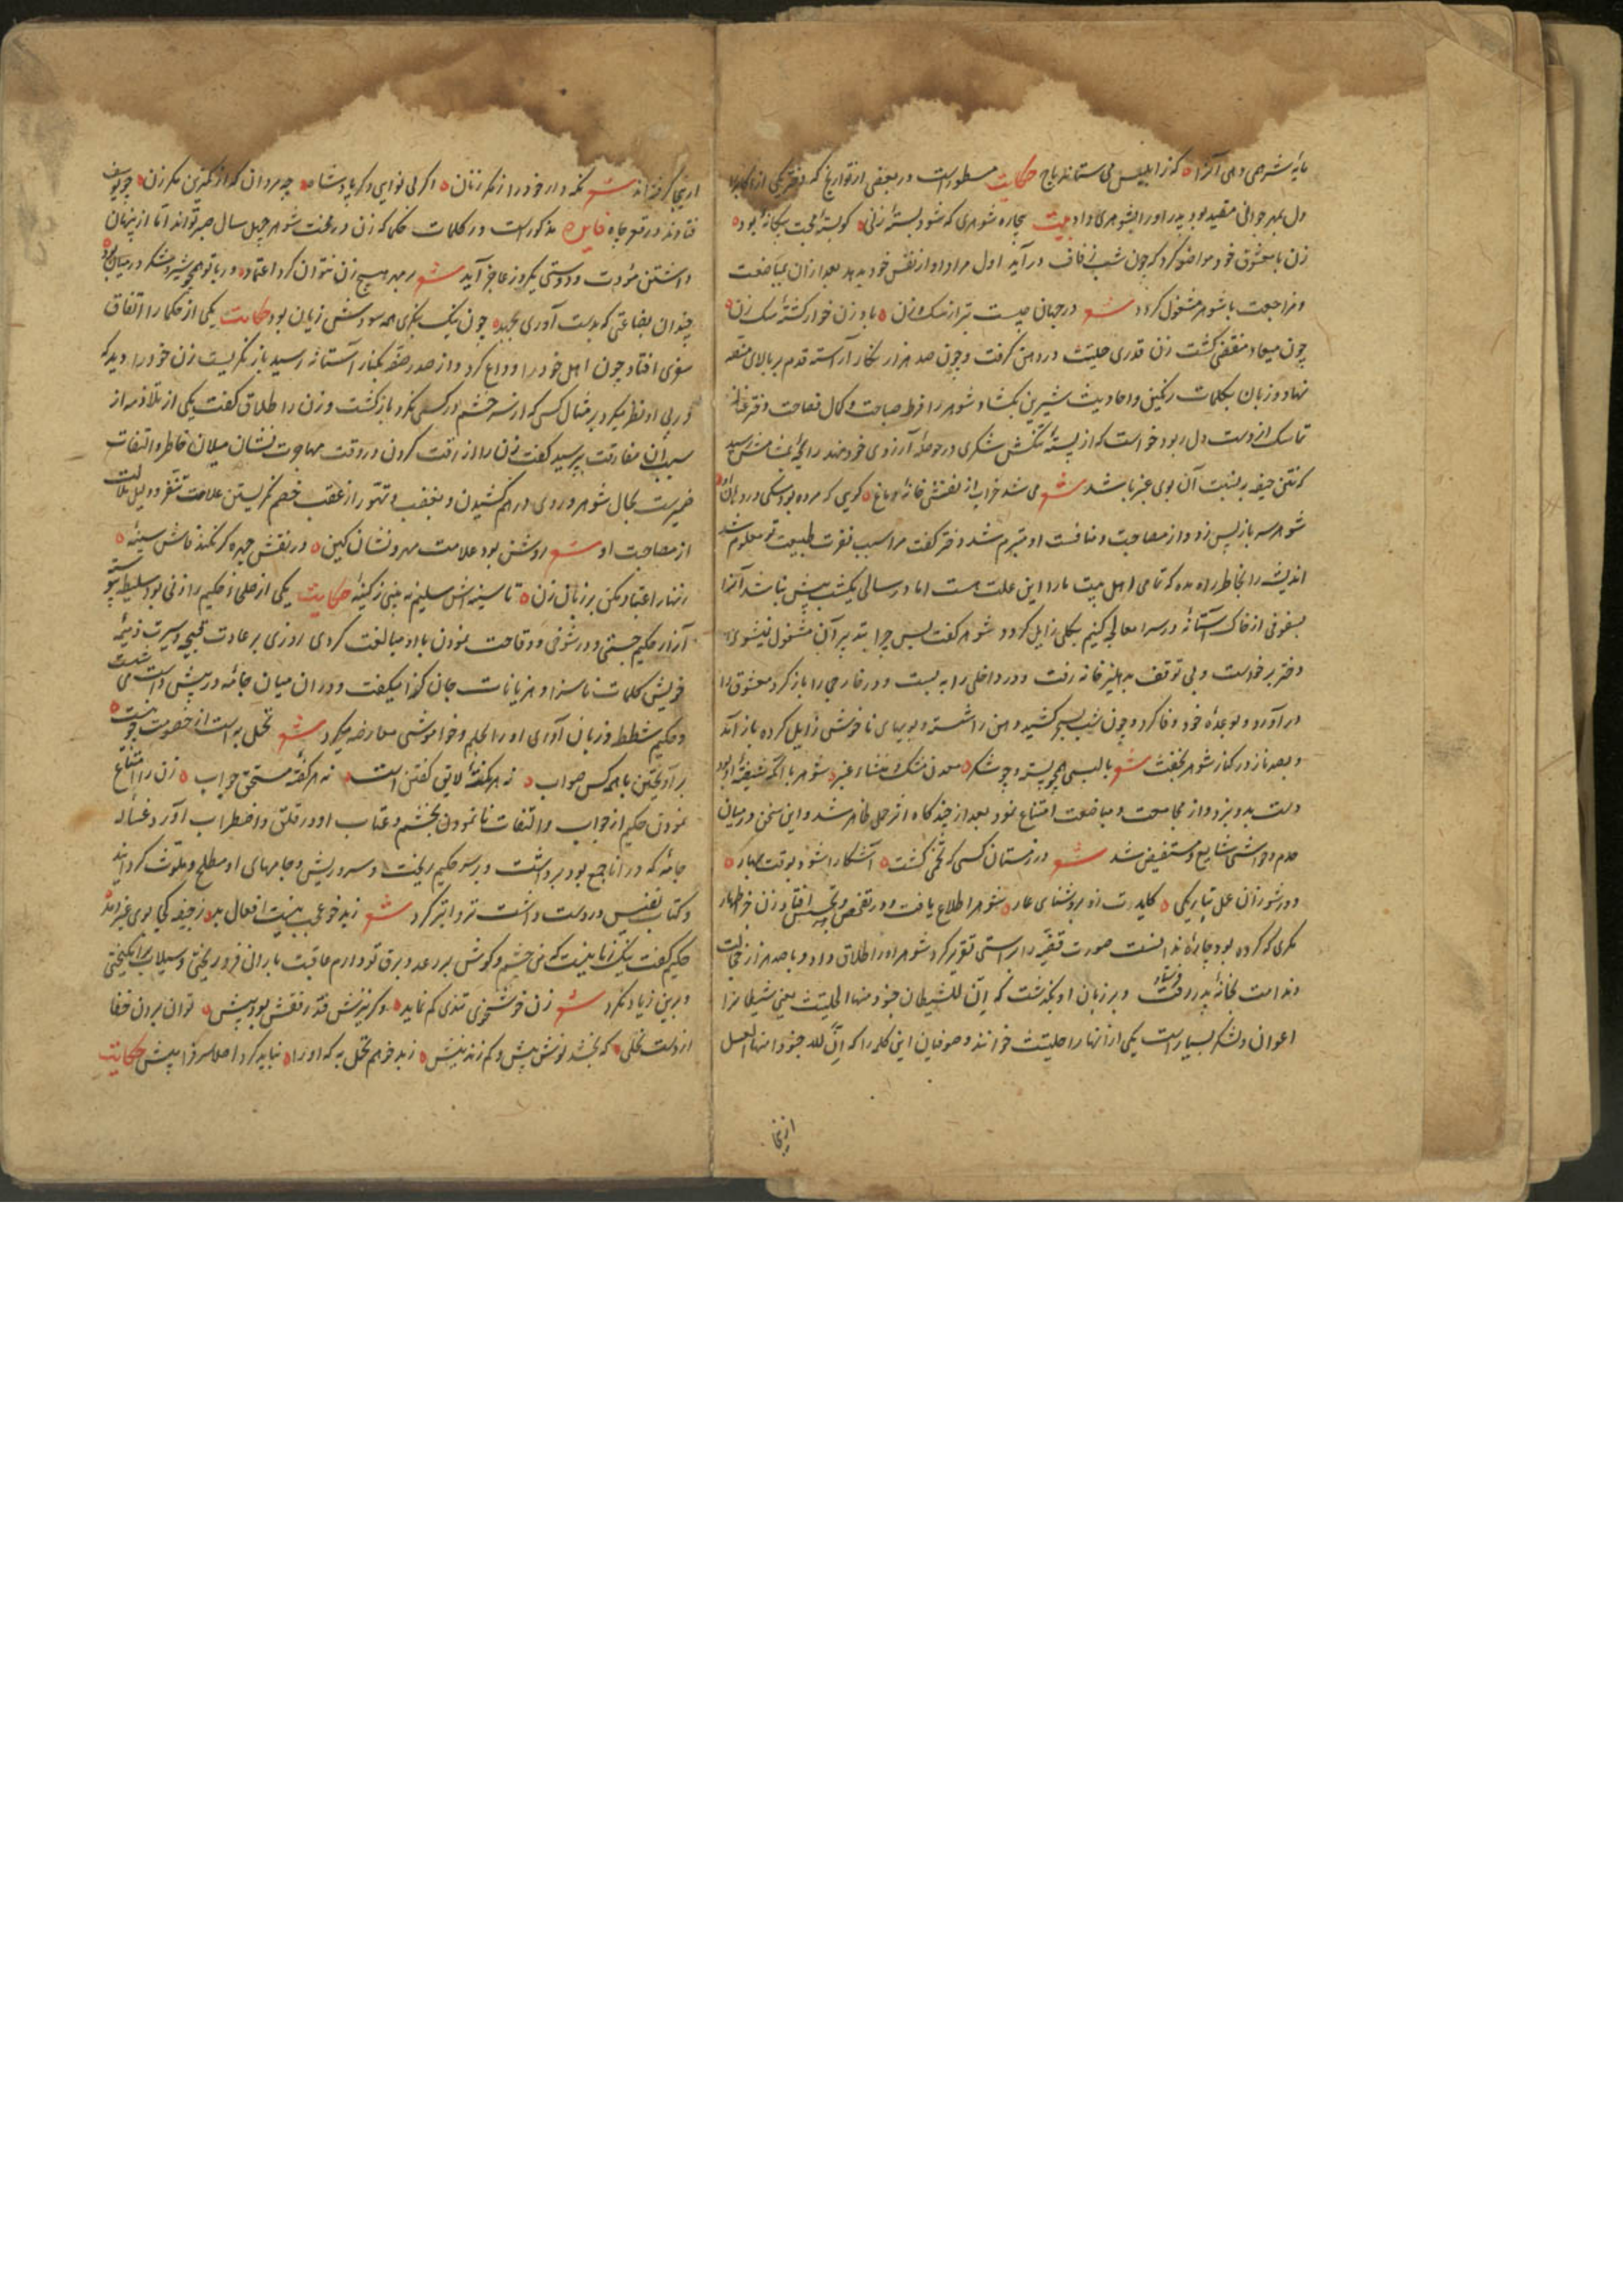 مایهٔ شر می دهی آنرا که زابلیس می ستاند باج حکایت مسطورست در بعضی از تواریخ که دختر یکی از اکابر را
دل بمهر جوانی مقید بود پدر او را بشوهری داد بیت بیچاره شوهری که شود بستهٔ زنی کو بستهٔ محبت بیگانهٔ بود
زن با معشوق خود مواضعه کرد که چون شب زفاف در آید اول مراد او از نفس خود بدهد بعد از آن بمباضعت
و مراجعت با شوهر مشغول گردد شعر در جهان چیست بتر از سگ و زن باد زن خوار کشتهٔ سگ زن
چون میعاد منقضی گشت زن قدری حلتیت در دهن گرفت و چون صد هزار نگار آراسته قدم بر بالای منصه
نهاد و زبان بکلمات رنگین و احادیث شیرین بگشاد شوهر را فرط صباحت و کمال فصاحت دختر
تماسک از دست دل ربود خواست که از پستهٔ تنگش شکری در حوصلهٔ آرزوی خود نهد رایحهٔ بمشامش رسید
که نتن جیفه بر نسبت آن بوی عبیر باشد شعر می شد خراب از نفسش خانهٔ دماغ گویی که مرده بود سگی در دهان او
شوهر سر باز پس زد و از مصاحبت و منافست او متبرم شد دختر گفت مرا سبب نفرت طبیعت تو معلوم شد
اندیشه را بخاطر راه مده که تمامی اهل بیت ما را این علت هست اما در سالی یکشب بیش نباشد آنرا
بسفوفی از خاک آستانهٔ در سرا معالجه کنیم بکلی زایل گردد شوهر گفت پس چرا بتدبیر آن مشغول نیشوی
دختر برخواست و بی توقف بدهلیز خانه رفت و در داخلی را به بست و در خارجی را باز کرد معشوق را
در آورد و بوعدهٔ خود وفا کرد و چون شب بسحر کشید دهن را شسته و بویهای ناخوش زایل کرده باز آمد
و بصد ناز در کنار شوهر بخفت شعر با لبی همچو پسته و چو شکر معدن مشک و منشاء عنبر شوهر با آنکه شیفتهٔ او بود
دست بدو نبرد و از مجامعت و مباضعت امتناع نمود بعد از چندگاه اثر حمل ظاهر شد و این سخن در میان
خدم و حواشی شایع و مستفیض شد شعر در زمستان کسی که تخمی کشت آشکارا شود بوقت بهار
دور شو زان عمل بتاریکی کایدت زو بروشنای عار شوهر اطلاع یافت و در تفحص و تجسس افتاد زن جز اظهار
مکری که کرده بود چارهٔ ندانست صورت قضیه را براستی تقریر کرد شوهر او را طلاق داد و با صد هزار خجالت
و ندامت بخانهٔ پدر فرستاد و بر زبان او بگذشت که ان للشیطان جنودا منها الحلتیت یعنی شیطانرا
اعوان و لشکر بسیارست یکی از آنها را حلتیت خوانند و صوفیان این کلمه را که ان لله جنودا منها العسل
ازینجا
ازینجا گرفته اند شعر نگه دار خود را ز مکر زنان اگر بی نوایی و گر پادشاه چه مردان که از کمترین مکر زن چو یوسف
فتادند در قعر چاه فایده مذکورست در کلمات حکما که زن در محنت شوهر چهل سال صبر تواند اما از پنهان
داشتن مؤدت و دوستی یکروز عاجز آید شعر بر مهر هیچ زن نتوان کرد اعتماد ور با تو همچو شیر و شکر در میان بود
چندان بضاعتی که بدست آوری بجهد چون نیک بنگری همه سودش زیان بود حکایت یکی از حکما را اتفاق
سفری افتاد چون اهل خود را وداع کرد و از صدر صفه بکنار آستانه رسید باز نگریست زن خود را دید که
در پی او نظر میکرد بر مثال کسی که از سر خشم در کسی نگرد بازگشت و زن را طلاق گفت یکی از تلامذه از
سبب آن مفارقت پرسید گفت زن را از رقت کردن در وقت مهاجرت نشان میلان خاطر و التفات
ضمیرست بحال شوهر و روی در هم کشیدن و بغضب و تهور از عقب خصم نگریستن علامت تنفر و دلیل ملالت
از مصاحبت او شعر روشن بود علامت مهر و نشان کین در نقش چهره گر نکند فاش سینه
زنهار اعتماد مکن بر زبان زن تا سینه اش سلیم نه بینی ز کینهٔ حکایت یکی از صلحاء حکیم را زنی بود سلیطه پیوسته
آزار حکیم جستی و در شوخی و وقاحت نمودن با او مبالغت کردی روزی بر عادت قبیحه و سیرت ذمیمه
خویش کلمات ناسزا و هزیانات جان گزا میگفت و در ان میان جامهٔ در پیش داشت می شست
و حکیم شطط و زبان آوری او را بحلم و خواموشی معارضه میکرد شعر تحمل به است از خصومت چو نیست
بر آویختن با همه کس صواب نه هر گفتهٔ لایق گفتن است نه هر گفتهٔ مستحق جواب زن را امتناع
نمودن حکیم از جواب و التفات نا نمودن بخشم و عتاب او در قلق و اضطراب آورد غسالهٔ
جامه که در اناجمع بود برداشت و بر سر حکیم ریخت و سر و ریش و جامهای او مطلخ و ملوث گردانید
و کتاب نفیس در دست داشت تر و ابتر کرد شعر زبد خو عجب نیست افعال بد ز جیفه کجا بوی عنبر دمد
حکیم گفت نیک زنا نیست که من چشم و گوش بر رعد و برق تو دارم عاقبت باران فرو ریختی و سیلاب برانگیختی
و برین زیاد نکرد شعر زن خوشخوی تندی کم نماید وگر نیزش فتد رفقش بود پیش توان بردن جفا
از دست نخلی که بخشد نوش بیش و کم زند نیش زبد خو هم تحمل به که او را نباید کرد اصلا سرفرا پیش حکایت